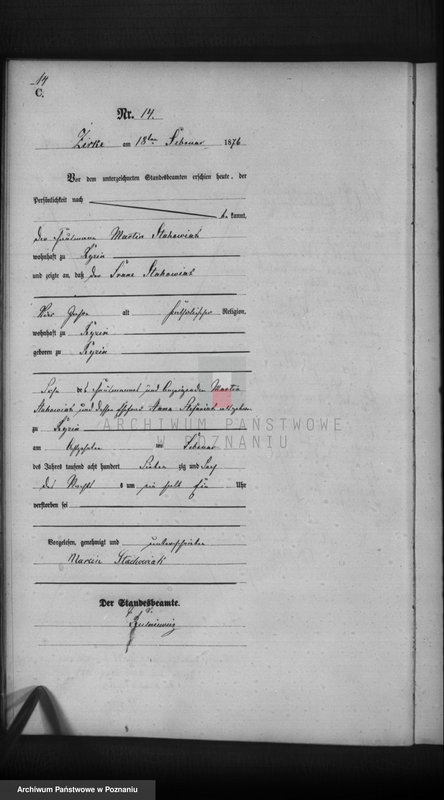 14
C.
Nr. 14.
Zirke am 18ten Februar 1876
Vor dem unterzeichneten Standesbeamten erschien heute, der
Persönlichkeit nach
be kannt,
der Martin Stachowiak
wohnhaft zu
und zeigte an, daß der Franz Stachowiak
Vier Jahre alt katholischer Religion,
wohnhaft zu
geboren zu
Sohn des und Anzeigenden Martin
Stachowiak und dessen Ehefrau Anna
zu
am ten Februar
des Jahres tausend acht hundert Sieben zig und Sechs
des Nachts um ein halb Ein Uhr
verstorben sei
Vorgelesen, genehmigt und unterschrieben
Marcin Stachowiak
Der Standesbeamte.
ARCHIWUM PAŃSTWOWE
W POZNANIU
Archiwum Państwowe w Poznaniu